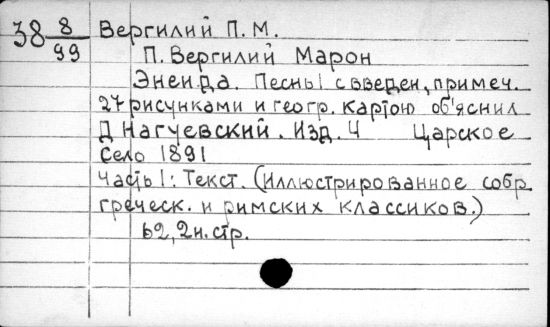 38 8/99 Вергилий П. М.
П. Вергилий Марон
Энеида. Песнь I с введен., примеч.
27 рисунками и геогр. картою об'яснил
Д Нагуевский. Изд. 4 Царское
Село 1891
Часть I: Текст. (Иллюстрированное собр
греческ. и римских классиков.)
62, 2 н. стр.